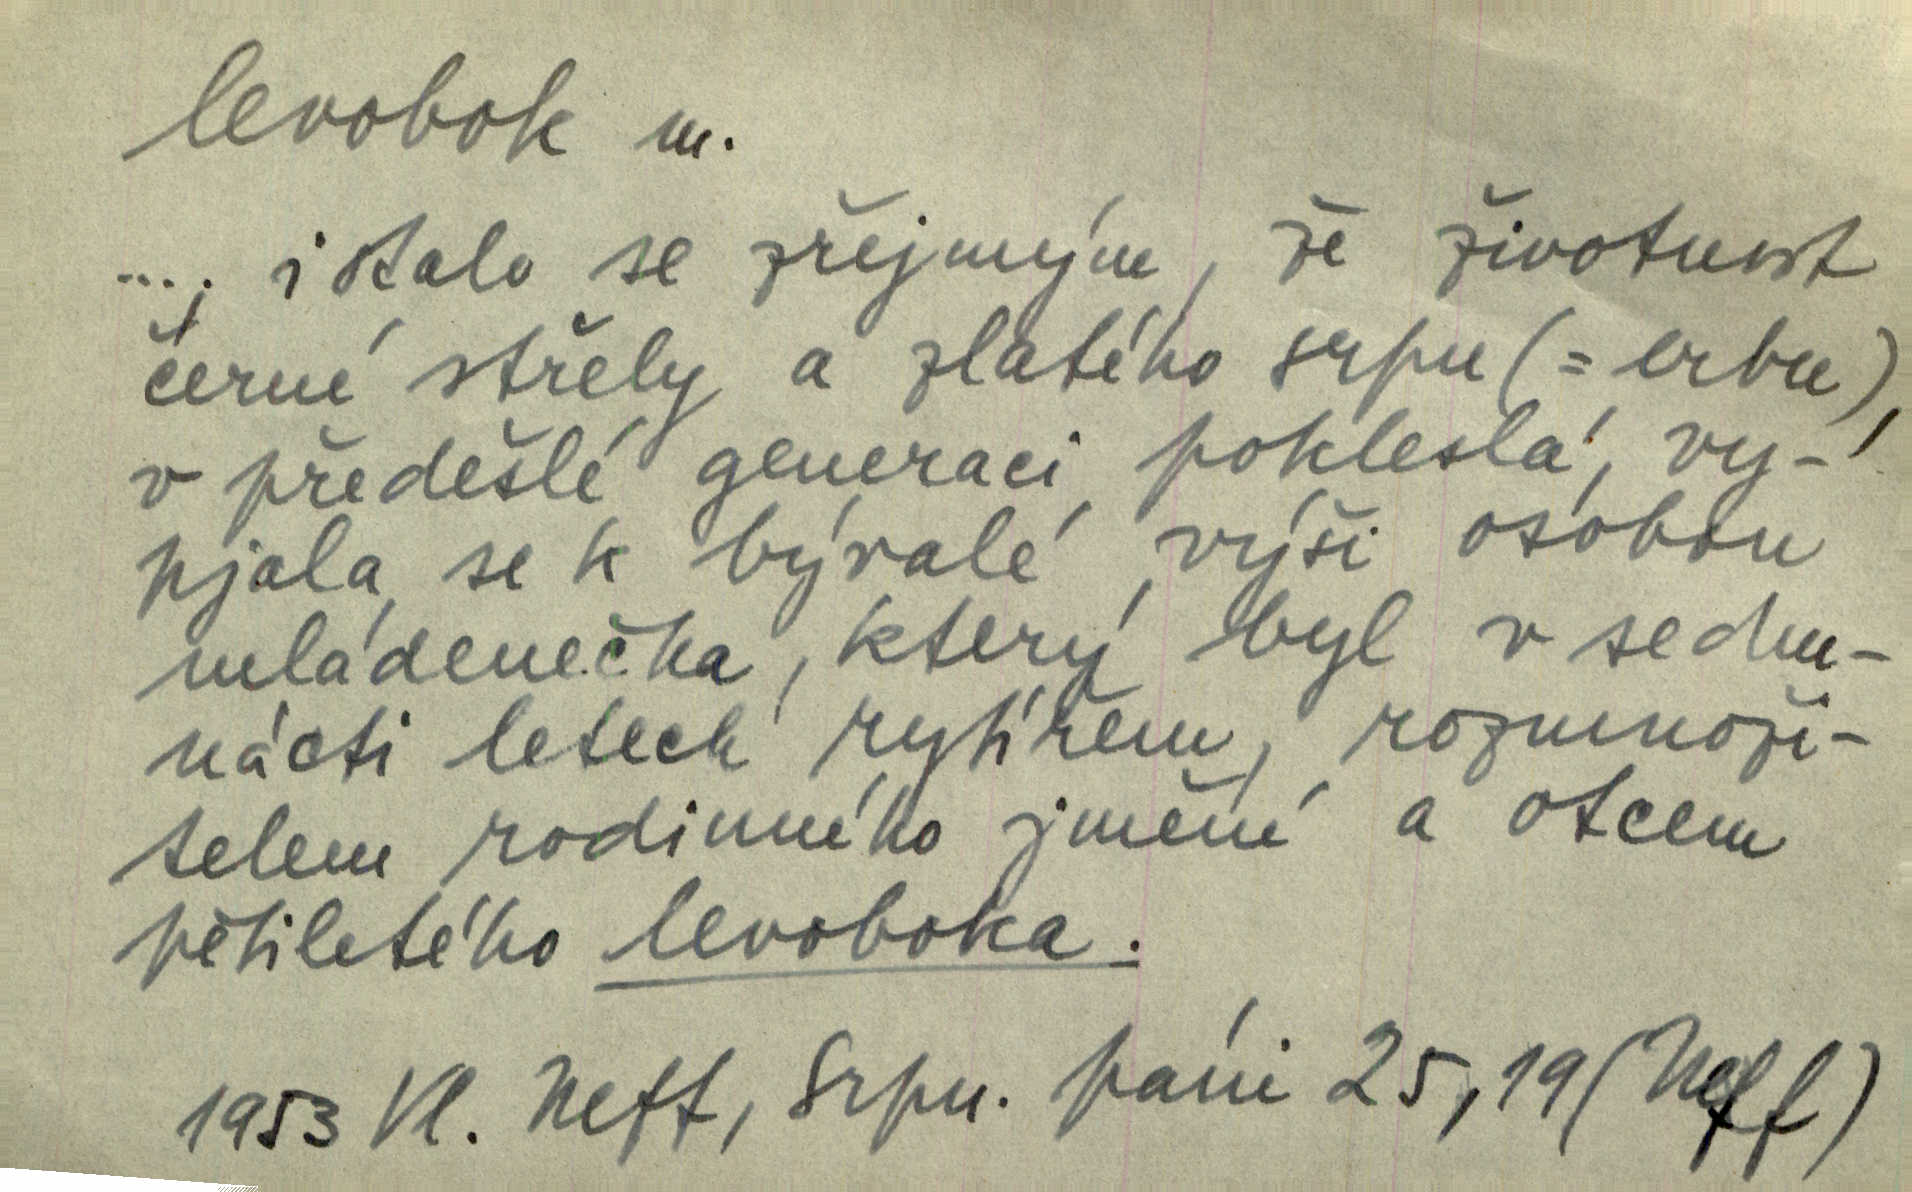 levobok m.
...., i stalo se zřejmým, že životnost
černé střely a zlatého srpu (= erbu),
v předešlé generaci pokleslá, vy-
pjala se k bývalé výši osobou
mládenečka, který byl v sedm-
nácti letech rytířem, rozmnoži-
telem rodinného jmění a otcem
pětiletého levoboka.
1953 Vl. Neff, Srpn. páni 25, 19 (Neff)